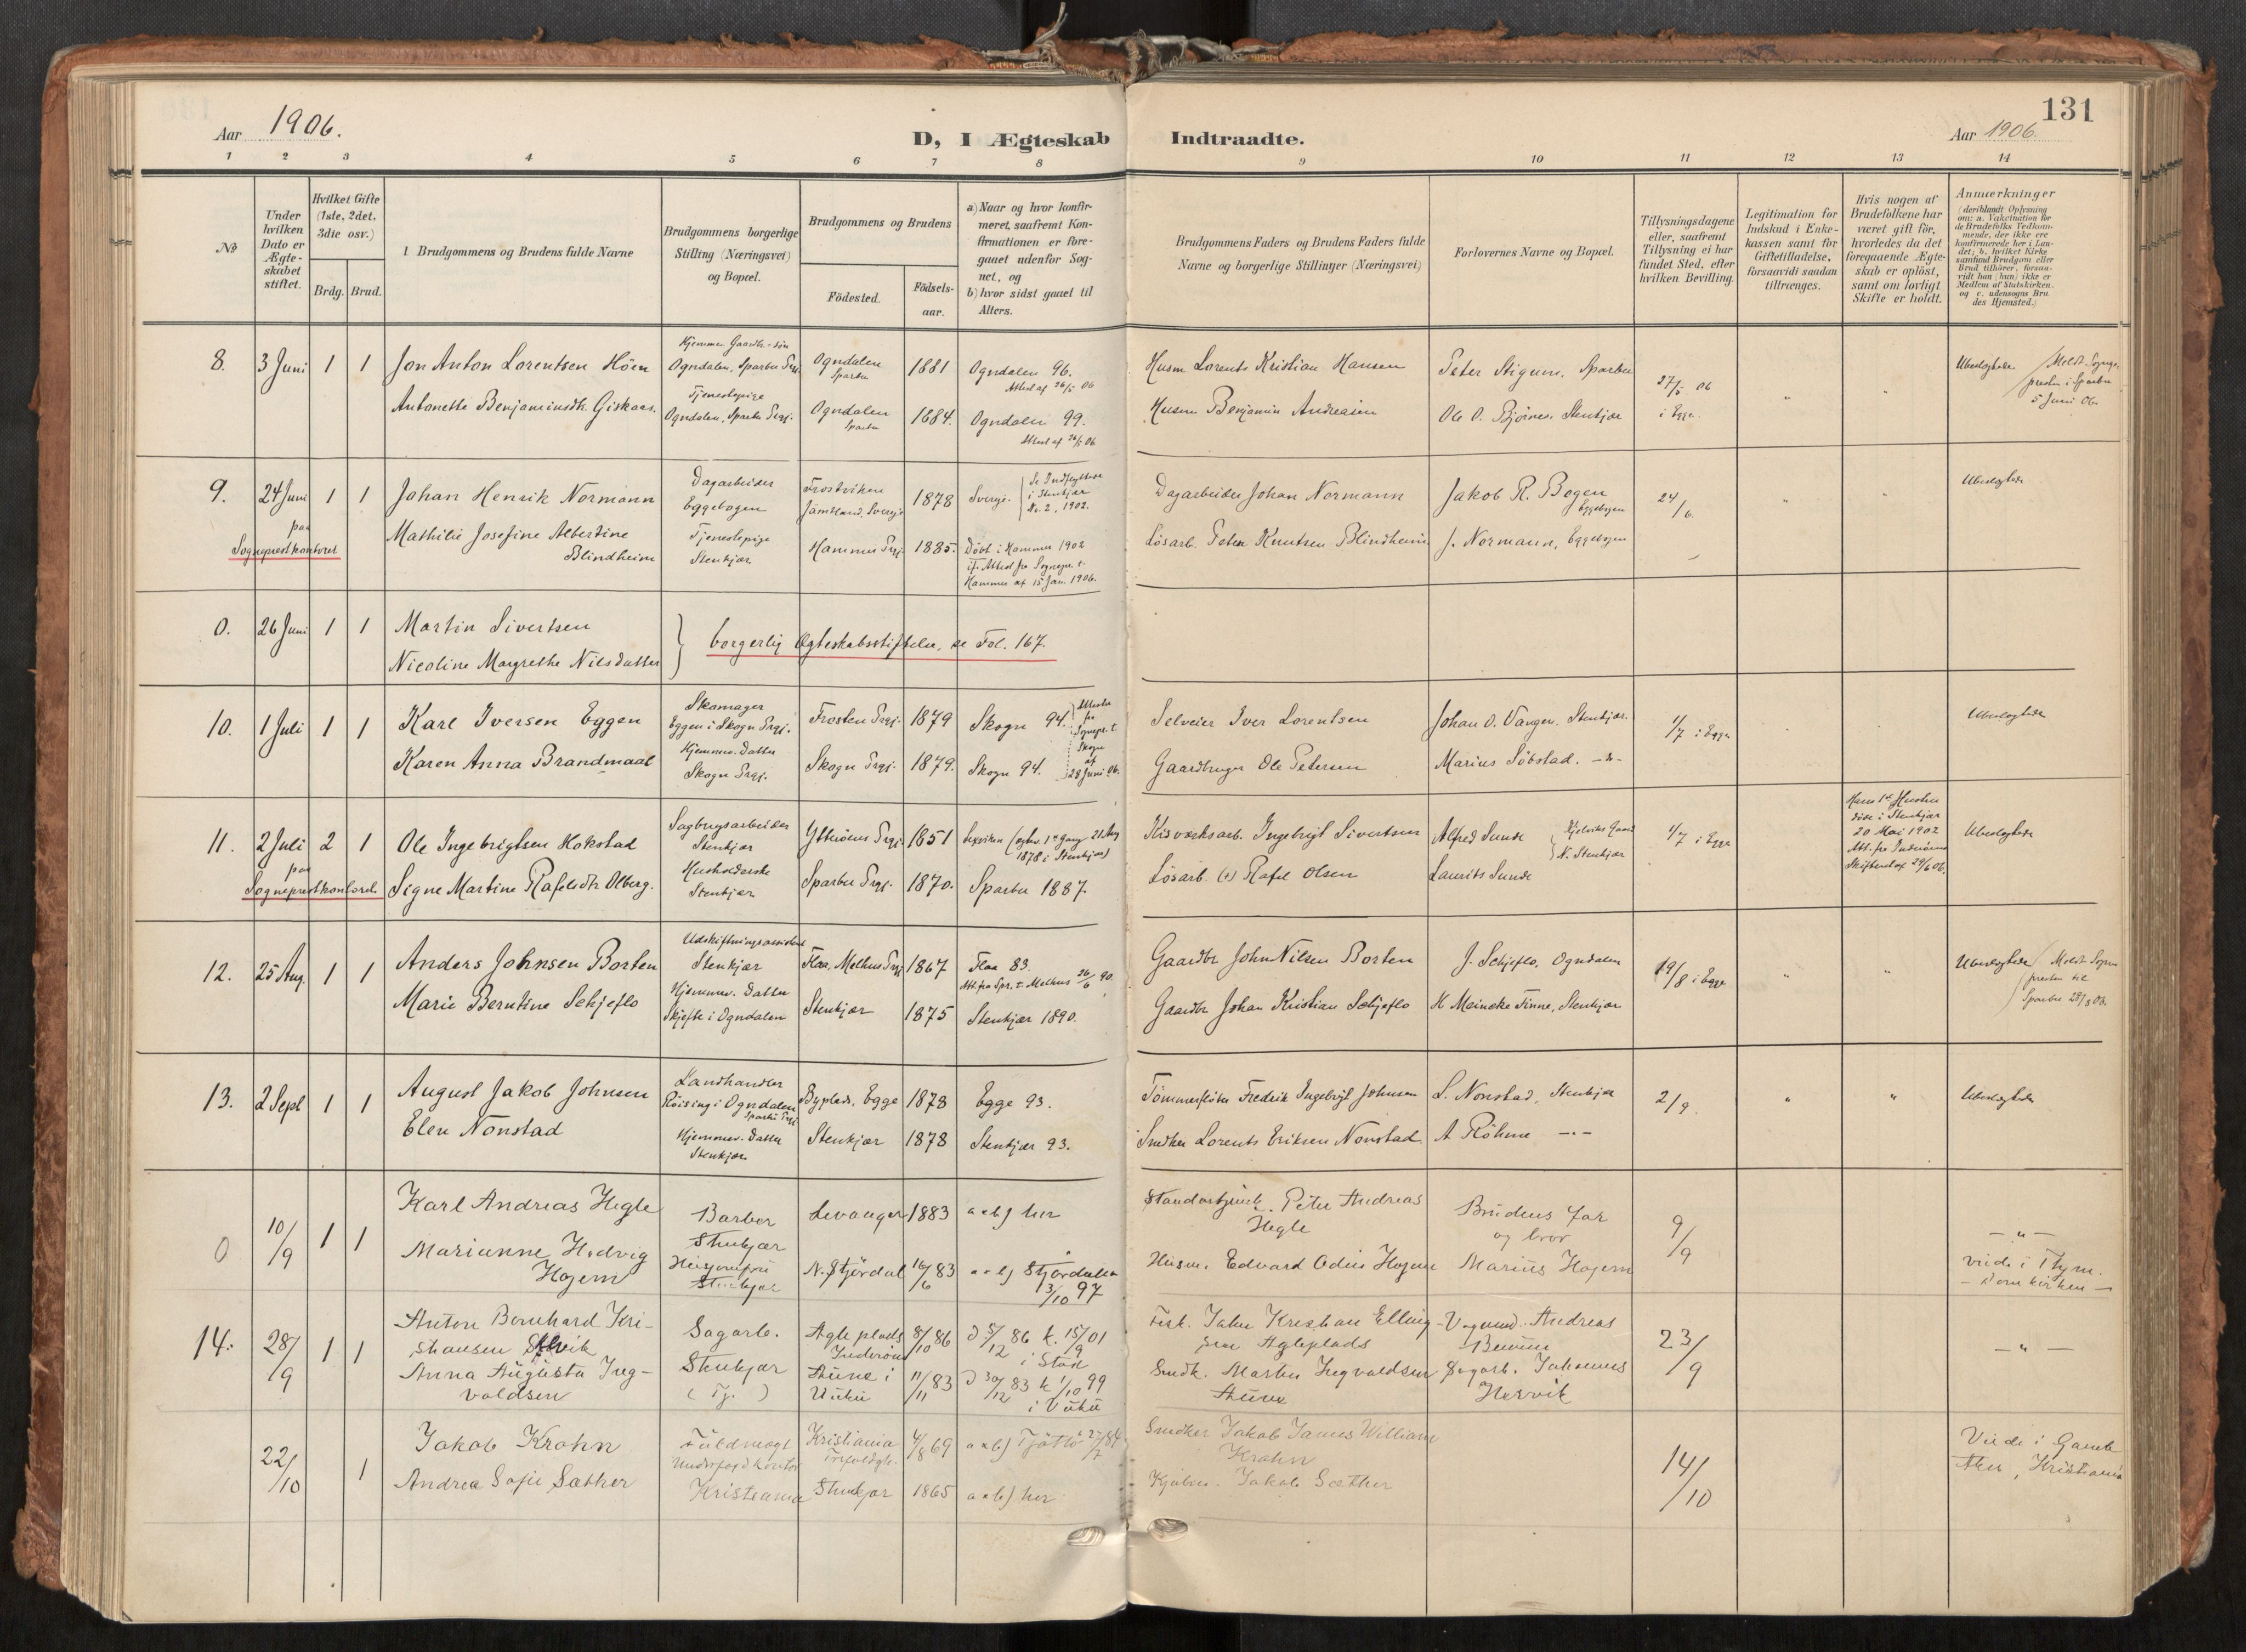 Aar 1906.
D, I Ægteskab Indtraadte.
131
Aar 1906.
1 2 3 4 5 6 7 8 9 10 11 12 13 14
No
Under hvilken Dato er Ægte-skabet stiftet.
Hvilket Gifte (1ste, 2det, 3die osv.)
Brdg. Brud.
Brudgommens og Brudens fulde Navne
Brudgommens borgerlige Stilling (Næringsvei) og Bopæl.
Brudgommens og Brudens
Födested.
Födsels-aar.
a) Naar og hvor konfir-meret, saafremt Kon-firmationen er fore-gaaet udenfor Sog-net, og
b) hvor sidst gaaet til Alters.
Brudgommens Faders og Brudens Faders fulde Navne og borgerlige Stillinger (Næringsvei)
Forlovernes Navne og Bopæl.
Tillysningsdagene eller, saafremt Tillysning ei har fundet Sted, efter hvilken Bevilling.
Legitimation for Indskud i Enke-kassen samt for Giftetilladelse, forsaavidt saadan tiltrænges.
Hvis nogen af Brudefolkene har været gift för, hvorledes da det foregaaende Ægte-skab er oplöst, samt om lovligt Skifte er holdt.
Anmærkninger
(deriblandt Oplysning om: a. Vakcination for de Brudefolks Vedkom-mende, der ikke ere konfirmerede her i Lan-det; b. hvilket Kirke-samfund Brudgom eller Brud tilhörer, forsaa-vidt han (hun) ikke er Medlem af Statskirken. og c. udensogns Bru-des Hjemsted.)
8. 3 Juni 1 1
Jon Anton Lorentsen Höen
Hjemmev. Gaardbr.-søn
Ogndalen, Sparbu Prgj.
Ogndalen
Sparbu
1881
Ogndalen 96.
Attest af 26/5 06
Husm Lorents Kristian Hansen
Peter Stigum, Sparbu
27/5 06
i Egge.
Ubeslægtede
Meldt Sogne-
presten i Sparbu
5 Juni 06
Antonette Benjaminsdtr. Giskaas.
Tjenestepige
Ogndalen, Sparbu Prgj.
Ogndalen
Sparbu
1884.
Ogndalen 99.
Attest af 26/5 06
Husm Benjamin Andreasen
Ole O. Bjørnes. Stenkjær
9. 24 Juni 1 1
paa
Sogneprestkontoret
Johan Henrik Normann
Dagarbeider
Eggebogen
Frostviken
Jämtland, Sverige
1878
Sverige.
Se Indflyttede
i Stenkjær
No. 2, 1902.
Dagarbeider Johan Normann
Jakob R. Bogen
Eggebogen
24/6.
Ubeslægtede
Mathilie Josefine Albertine
Blindheim
Tjenestepige
Stenkjær
Hammer Prgj.
1885.
Döbt i Hammer 1902
if. Attest fra Sognepr. t.
Hammer af 15 Jan. 1906.
Lösarb. Peter Knutsen Blindheim
J. Normann, Eggebogen
0. 26 Juni 1 1
Martin Sivertsen
Nicoline Margrethe Nilsdatter
borgerlig Ægteskabsstiftelse, se Fol. 167.
10. 1 Juli 1 1
Karl Iversen Eggen
Skomager
Eggen i Skogn Prgj.
Frosten Prgj.
1879
Skogn 94.
Attester
fra
Sognepr. t.
Skogn
af
28 Juni 06.
Selveier Iver Lorentsen
Johan O. Vangen. Stenkjær.
1/7 i Egge
Ubeslægtede
Karen Anna Brandmaal
Hjemmev. Datter
Skogn Prgj.
Skogn Prgj.
1879.
Skogn 94.
Gaardbruger Ole Petersen
Marius Söbstad.
11. 2 Juli 2 1
paa
Sogneprestkontoret
Ole Ingebrigtsen Hokstad
Sagbrugsarbeider
Stenkjær
Ytterøens Prgj.
1851
(egtev. 1ste Gang 21 Aug
1878 i Stenkjær)
Kisværksarb. Ingebrigt Sivertsen
Alfred Sunde
N. Stenkjær
1/7 i Egge
Hans 1ste Hustru
døde i Stenkjær
20 Mai 1902
Att. fra Inderøens
Skifteret af 29/6 06.
Ubeslægtede
Signe Martine Rafelsdtr. Olberg.
Husholderske
Stenkjær
Sparbu Prgj.
1870.
Sparbu 1887.
Lösarb. Rafel Olsen
Laurits Sunde
12. 25 Aug. 1 1
Anders Johnsen Borten
Udskiftningsassistent
Stenkjær
Flaa, Melhus Prgj
1867
Flaa 83.
Att. fra Spr. t. Melhus 26/6 90.
Gaardbr John Nilsen Borten
J. Schjeflo, Ogndalen
19/8 i Egge
Ubeslægtede
Meldt Sogne
presten til
Sparbu 28/8 06.
Marie Berntine Schjeflo
Hjemmev. Datter
Skjefte i Ogndalen
Stenkjær
1875
Stenkjær 1890.
Gaardbr Johan Kristian Schjeflo
H Meincke Finne, Stenkjær
13. 2 Sept 1 1
August Jakob Johnsen
Landhandler
Röising i Ogndalen
Sparbu Prgj.
Byplads, Egge
1878
Egge 93.
Tömmerfløter Fredrik Ingebrigt Johnsen
L. Nonstad, Stenkjær
2/9.
Ubeslægtede
Elen Nonstad
Hjemmev. Datter
Stenkjær
Stenkjær
1878
Stenkjær 93.
Snedker Lorents Eriksen Nonstad.
A Röhme
0 10/9 1 1
Karl Andreas Hegle
Barber
Stenkjær
Levanger
1883
a + b) her
Peter Andreas
Hegle
Brudens far
og bror
9/9
Viede i Thjm.
- Domkirken -
Marianne Hedvig
Hojem
Husjomfru
Stenkjær
N. Stjørdal
16/6 83
a + b) Stjørdalen
13/10 97
Husm. Edvard Odin Hojem
Marius Hojem
14. 28/9 1 1
Anton Bernhard Kri-
stiansen
Sagarb.
Stenkjær
Agleplads
Inderøen
8/10 86
D 5/12 86 k. 15/9 01
i Stod
Fisk. Johan Kristian Elling-
sen Agleplads
Vognmd. Andreas
23/9
Anna Augusta Ing-
valdsen
(Tj.)
Aune i
Vuku
11/11 83
D 30/12 83 k 1/10 99
i Vuku
Smedk. Martin Ingvaldsen
Aune
Sagarb. Johannes
Hervik
22/10 1
Jakob Krohn
Fuldmægt
Kristiania
4/8 69
a + b) Tjøttö
Snedker Jakob James William
Krohn
14/10
Viede i Gamle
Aker, Kristiania
Andrea Sofie Sæther
Kristiania
Stenkjær
1865
a + b) her
Jakob Sæther